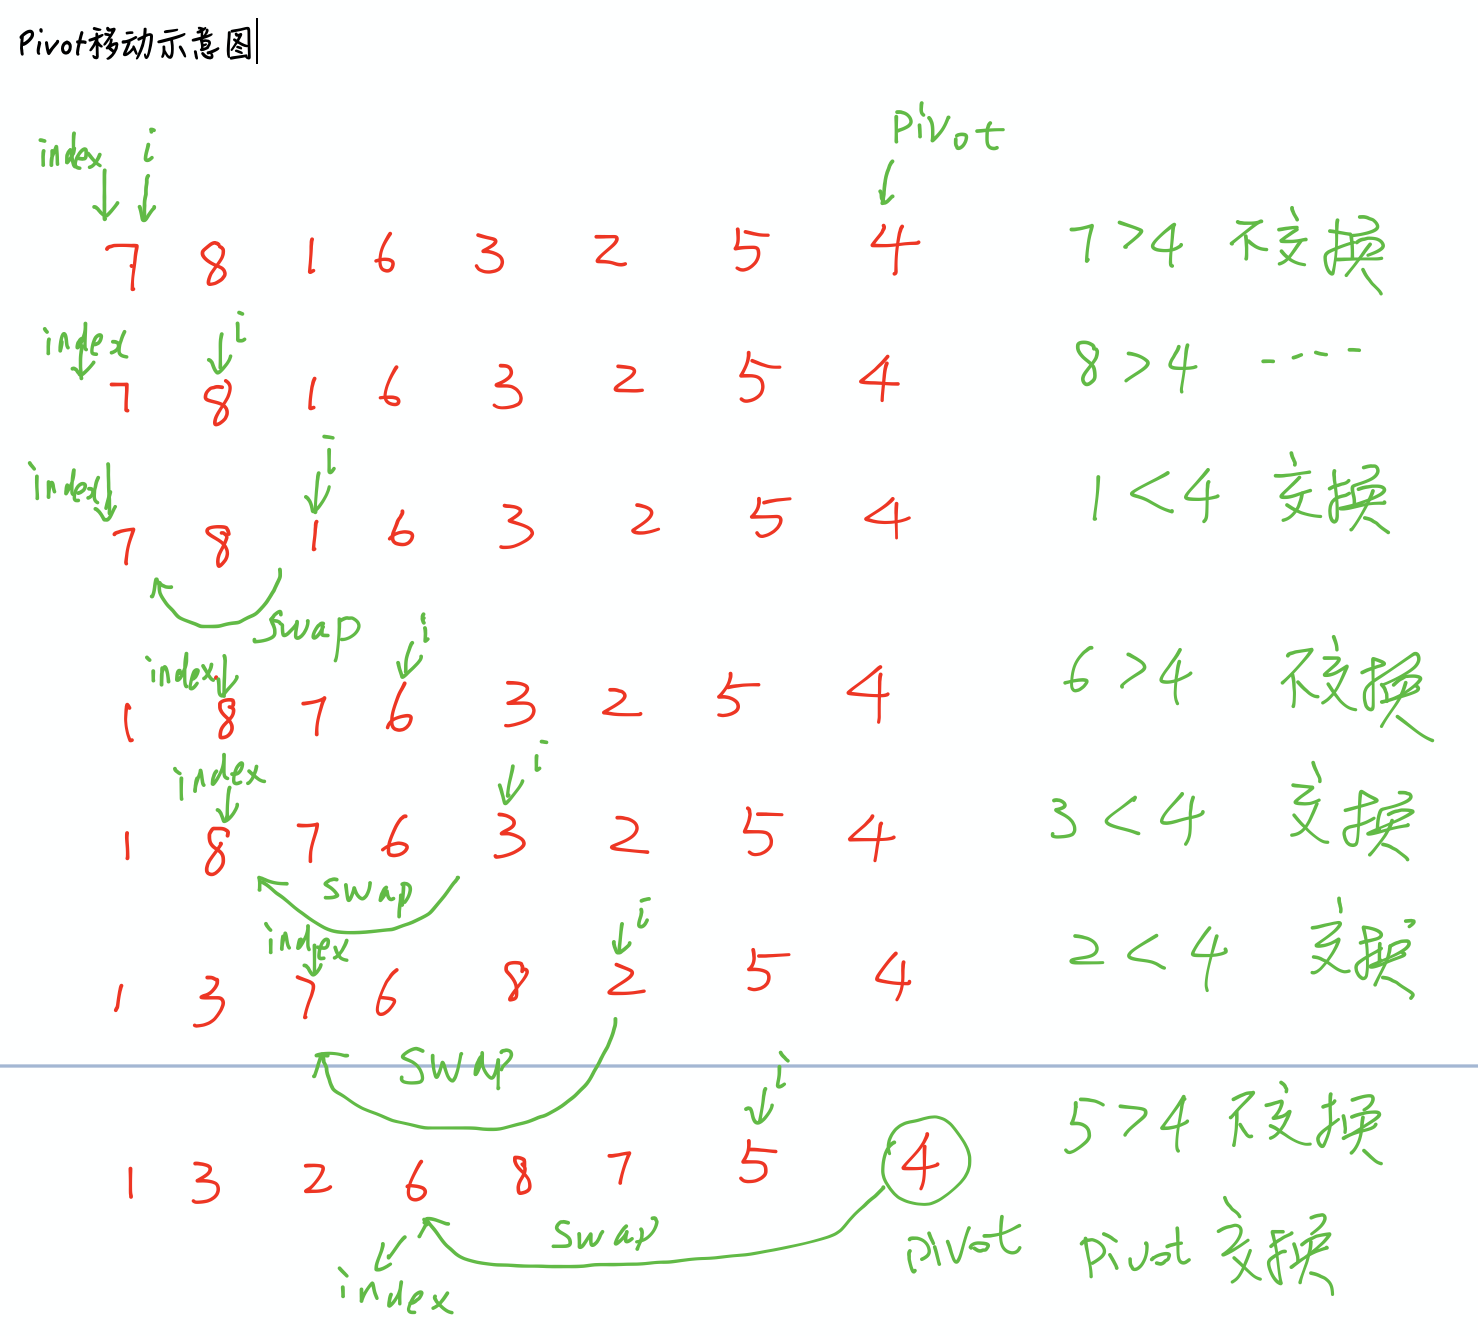 Pivot移动示意图
index i pivot
7 8 1 6 3 2 5 4 7>4 不交换
index i
7 8 1 6 3 2 5 4 8>4 ····
index i
7 8 1 6 3 2 5 4 1<4 交换
swap
index i
1 8 7 6 3 2 5 4 6>4 不交换
index i
1 8 7 6 3 2 5 4 3<4 交换
swap
index i
1 3 7 6 8 2 5 4 2<4 交换
swap
i
1 3 2 6 8 7 5 4 5>4 不交换
swap pivot pivot 交换
index